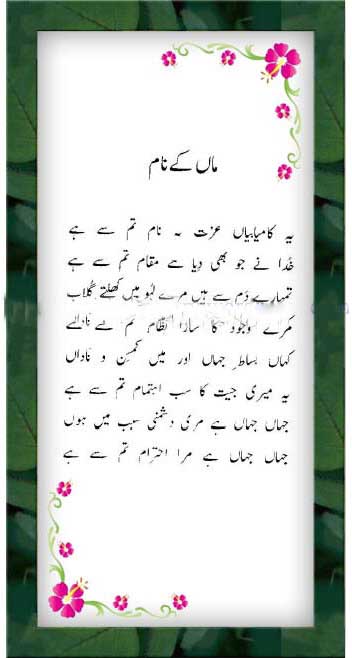 ماں کے نام
یہ کامیابیاں عزت یہ نام تم سے ہے
خدا نے جو بھی دیا ہے مقام تم سے ہے
تمہارے دَم سے ہیں مرے لہو میں کھلتے گلاب
مرے وجود کا سارا نظام تم سے
کہاں بساطِ جہاں اور میں کمسِن و ناداں
یہ میری جیت کا سب اہتمام تم سے ہے
جہاں جہاں ہے مری دشمنی سبب میں ہوں
جہاں جہاں ہے مرا احترام تم سے ہے